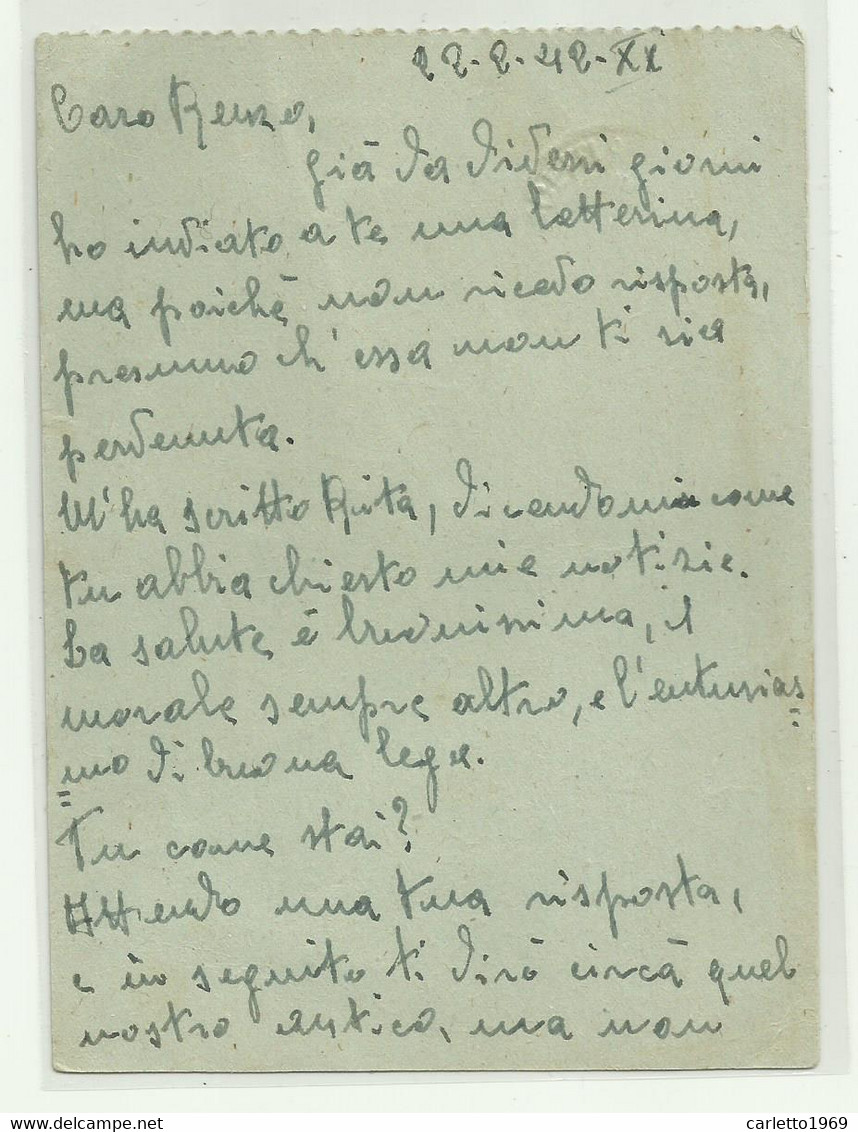 22-2-42-XX
Caro Renzo,
già da diversi giorni
ho inviato a te una letterina,
ma poichè non ricevo risposta,
presumo ch'essa non ti sia
pervenuta.
M'ha scritto Rita, dicendomi come
tu abbia chiesto mie notizie.
La salute è buonissima, il
morale sempre altro, e l'entusias
=
mo di buona lega.
=
Tu come stai?
Attendo una tua risposta,
e in seguito ti dirò circa quel
nostro antico, ma non
delcampe.net
carletto1969